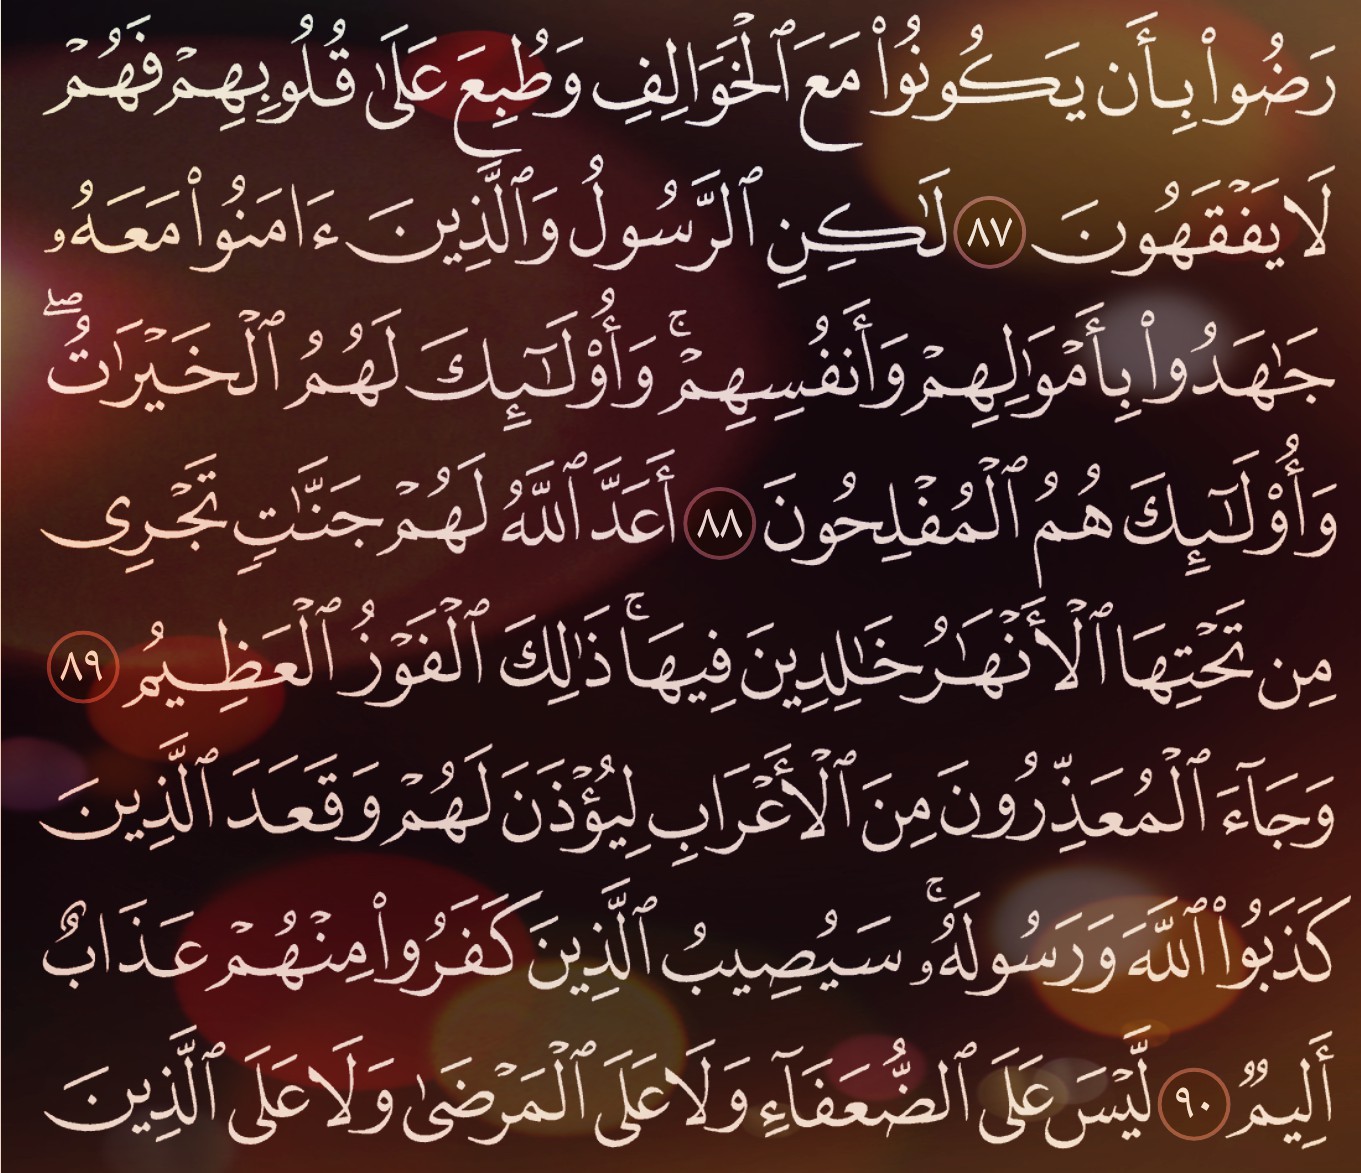 رَضُوا۟ بِأَن يَكُونُوا۟ مَعَ ٱلْخَوَالِفِ وَطُبِعَ عَلَىٰ قُلُوبِهِمْ فَهُمْ
لَا يَفْقَهُونَ ٨٧ لَـٰكِنِ ٱلرَّسُولُ وَٱلَّذِينَ ءَامَنُوا۟ مَعَهُۥ
جَـٰهَدُوا۟ بِأَمْوَٰلِهِمْ وَأَنفُسِهِمْ ۚ وَأُو۟لَـٰٓئِكَ لَهُمُ ٱلْخَيْرَٰتُ ۖ
وَأُو۟لَـٰٓئِكَ هُمُ ٱلْمُفْلِحُونَ ٨٨ أَعَدَّ ٱللَّهُ لَهُمْ جَنَّـٰتٍ تَجْرِى
مِن تَحْتِهَا ٱلْأَنْهَـٰرُ خَـٰلِدِينَ فِيهَا ۚ ذَٰلِكَ ٱلْفَوْزُ ٱلْعَظِيمُ ٨٩
وَجَآءَ ٱلْمُعَذِّرُونَ مِنَ ٱلْأَعْرَابِ لِيُؤْذَنَ لَهُمْ وَقَعَدَ ٱلَّذِينَ
كَذَبُوا۟ ٱللَّهَ وَرَسُولَهُۥ ۚ سَيُصِيبُ ٱلَّذِينَ كَفَرُوا۟ مِنْهُمْ عَذَابٌ
أَلِيمٌ ٩٠ لَّيْسَ عَلَى ٱلضُّعَفَآءِ وَلَا عَلَى ٱلْمَرْضَىٰ وَلَا عَلَى ٱلَّذِينَ